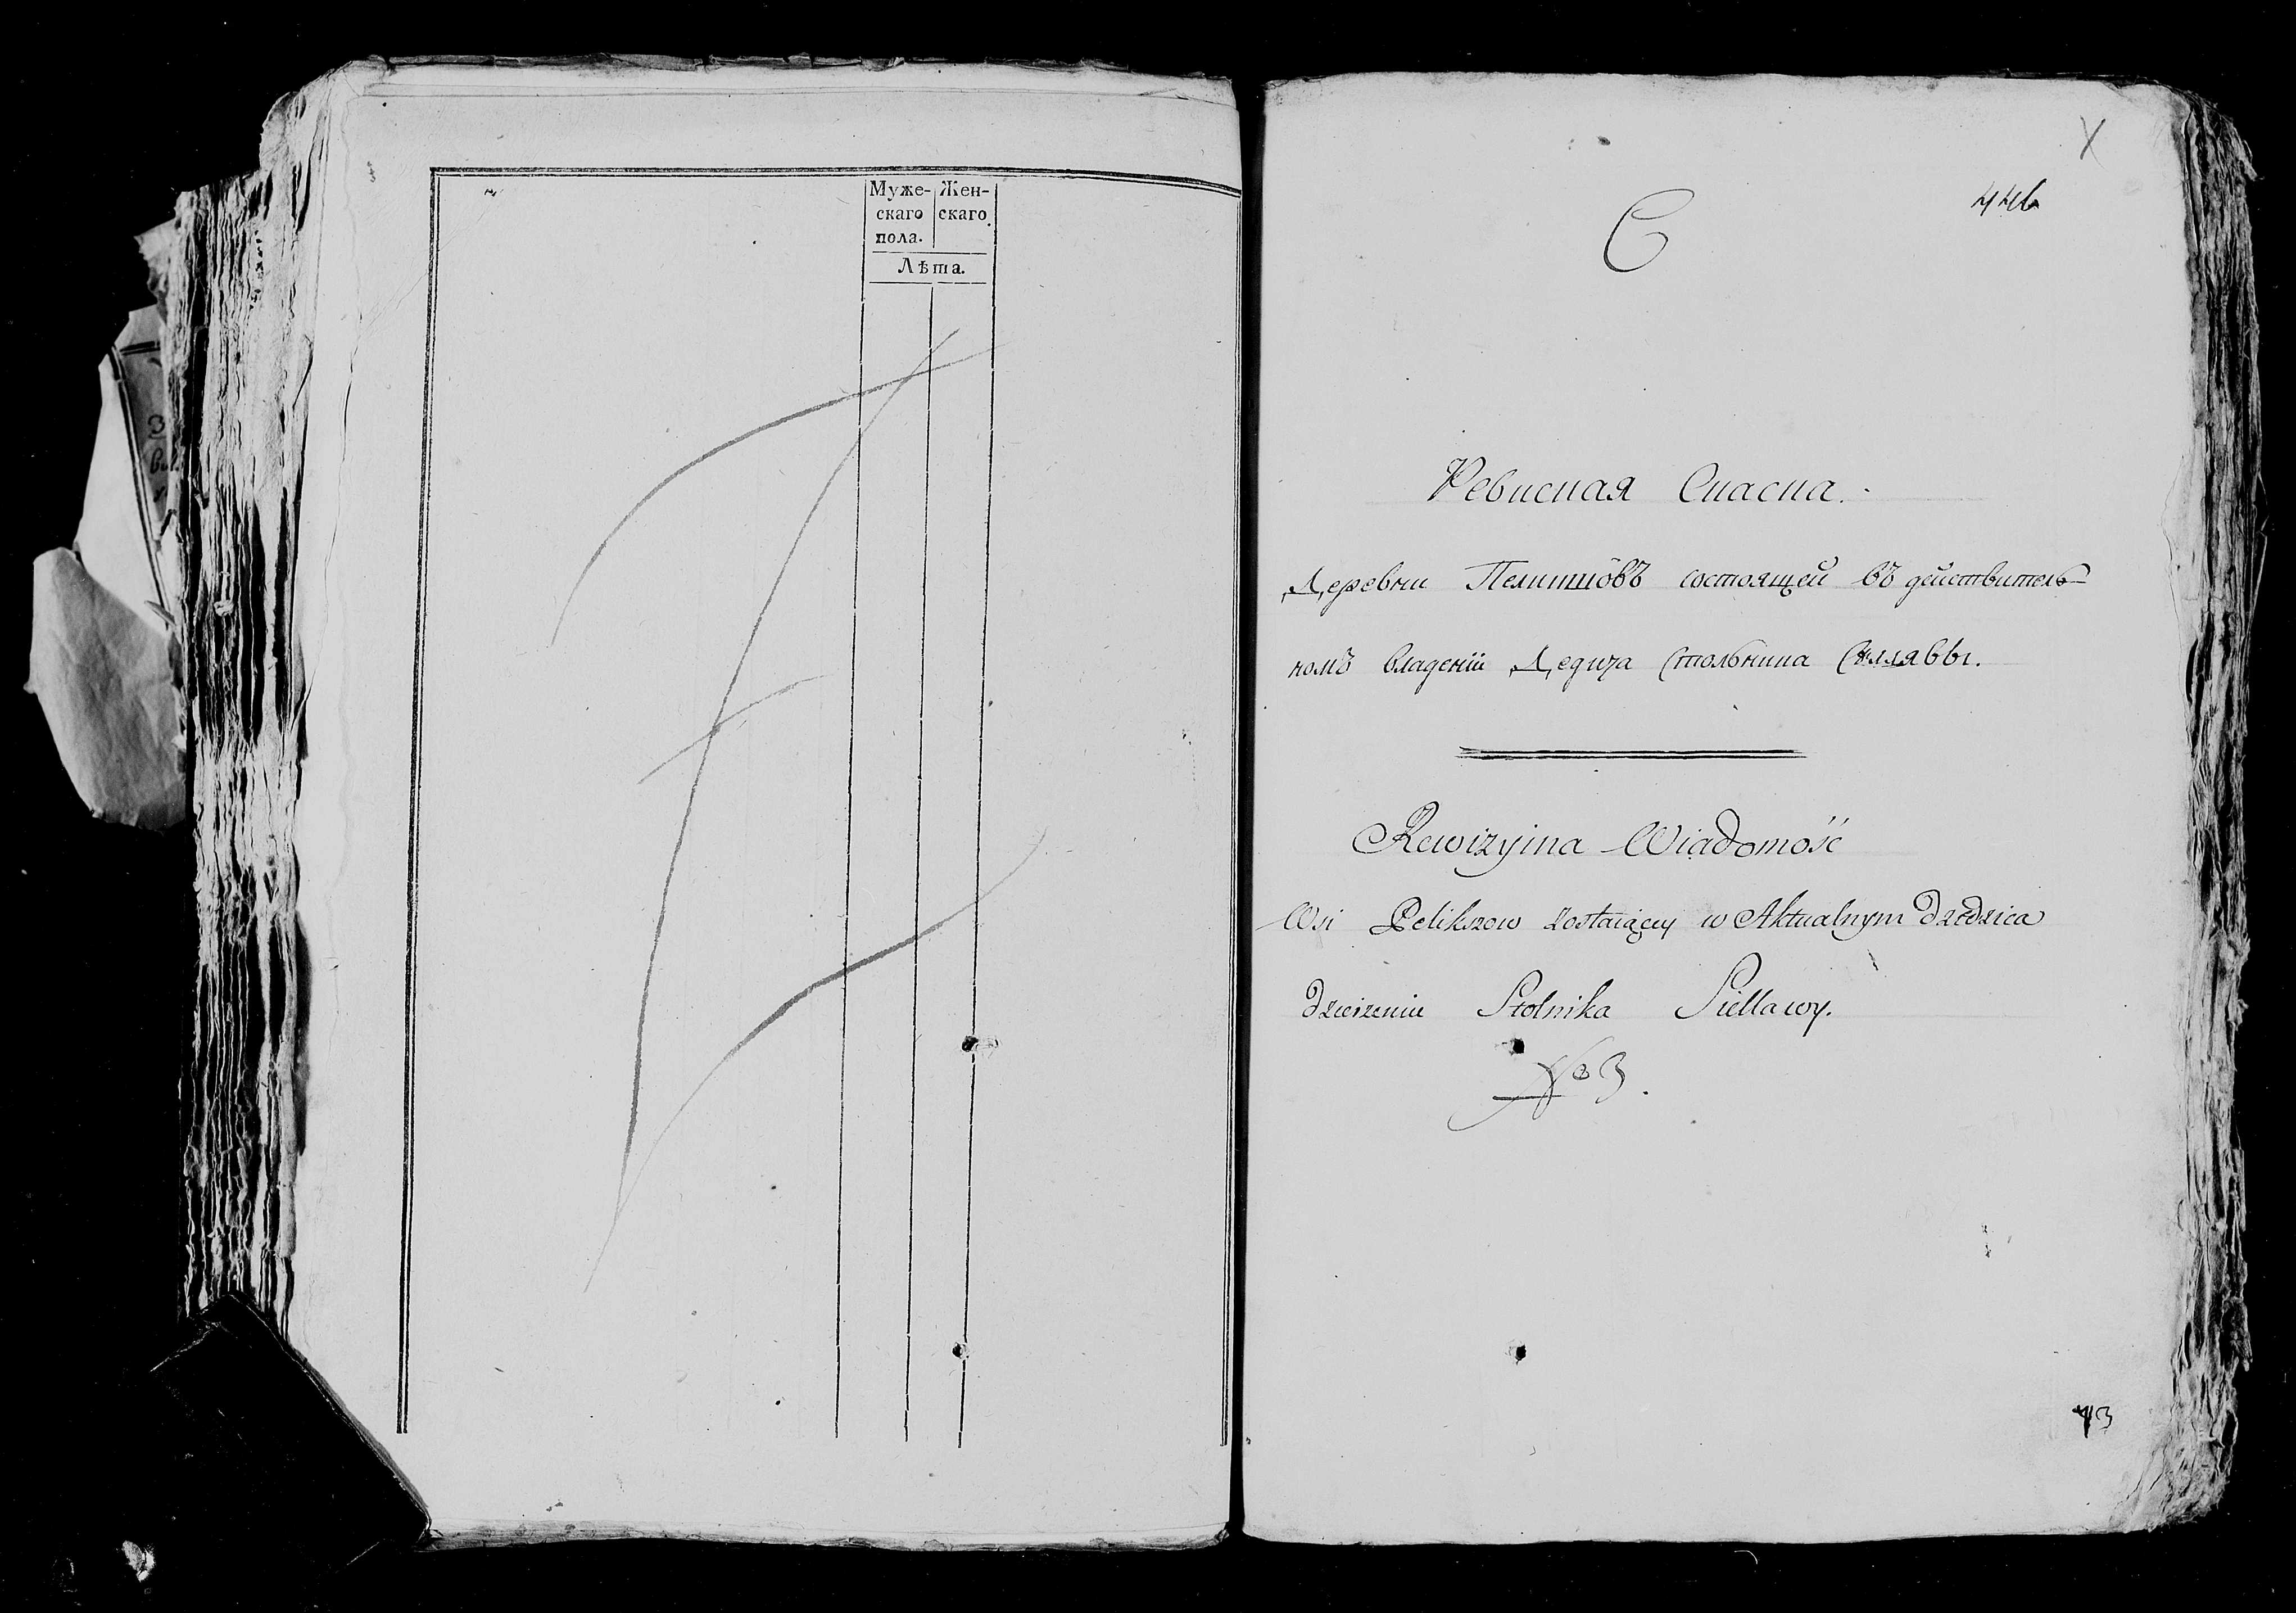 Муже- Жен-
скаго скаго
пола.
Лѣта.
С
Ревиская Скаска.
Деревни состоящей въ действитель-
номъ владеніи Дедица Стольника Селлявы.
Rewizyina Wiadomość
Wsi Pelikszow zostaiącey w Aktualnym dziedzica
dzierzeniu Stolnika Siellawy.
№ 3.